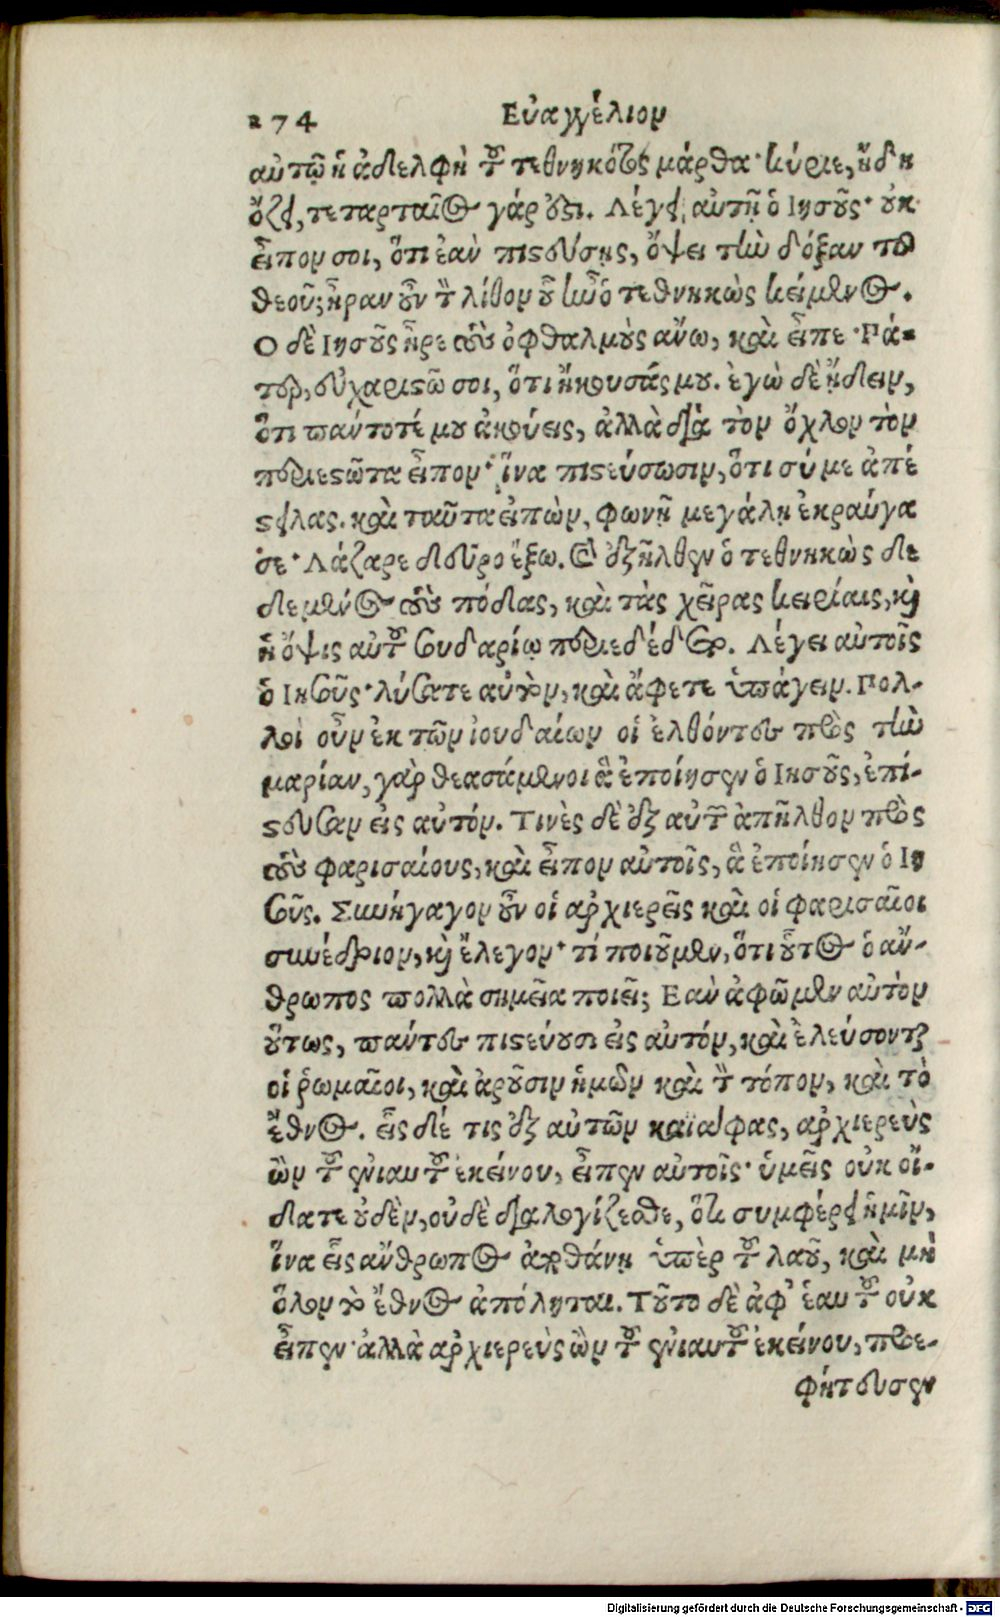 274 Εὐαγγέλιον
αὐτῷ ἡ ἀδελφὴ τοῦ τεθνηκότος μάρθα· κύριε, ἤδη
ὄζει, τεταρταῖος γάρ ἐστι. Λέγει αὐτῇ ὁ Ιησοῦς· οὐκ
εἶπον σοι, ὅτι ἐὰν πιστεύσῃς, ὄψει τὴν δόξαν τοῦ
θεοῦ; ἦραν οὖν τὸν λίθον οὗ ἦν ὁ τεθνηκὼς κείμενος.
Ο δὲ Ιησοῦς ἦρε τοὺς ὀφθαλμοὺς ἄνω, καὶ εἶπε· Πά-
τερ, εὐχαριστῶ σοι, ὅτι ἤκουσάς μου. ἐγὼ δὲ ᾔδειν,
ὅτι πάντοτέ μου ἀκούεις, ἀλλὰ διὰ τὸν ὄχλον τὸν
περιεστῶτα εἶπον· ἵνα πιστεύσωσιν, ὅτι σύ με ἀπέ
στειλας. καὶ ταῦτα εἰπὼν, φωνῇ μεγάλῃ ἐκραύγα
σε· Λάζαρε δεῦρο ἔξω. Καὶ ἐξῆλθεν ὁ τεθνηκὼς δε
δεμένος τοὺς πόδας, καὶ τὰς χεῖρας κειρίαις, καὶ
ἡ ὄψις αὐτοῦ σουδαρίῳ περιεδέδετο. Λέγει αὐτοῖς
ὁ Ιησοῦς· λύσατε αὐτὸν, καὶ ἄφετε ὑπάγειν. Πολ-
λοὶ οὖν ἐκ τῶν ἰουδαίων οἱ ἐλθόντες πρὸς τὴν
μαρίαν, γὰρ θεασάμενοι ἃ ἐποίησεν ὁ Ιησοῦς, ἐπί-
στευσαν εἰς αὐτόν. Τινὲς δὲ ἐξ αὐτῶν ἀπῆλθον πρὸς
τοὺς φαρισαίους, καὶ εἶπον αὐτοῖς, ἃ ἐποίησεν ὁ Ιη
σοῦς. Συνήγαγον οὖν οἱ ἀρχιερεῖς καὶ οἱ φαρισαῖοι
συνέδριον, καὶ ἔλεγον· τί ποιοῦμεν, ὅτι οὗτος ὁ ἄν-
θρωπος πολλὰ σημεῖα ποιεῖ; Εὰν ἀφῶμεν αὐτὸν
οὕτως, πάντες πιστεύουσι εἰς αὐτόν, καὶ ἐλεύσονται
οἱ ῥωμαῖοι, καὶ ἀροῦσιν ἡμῶν καὶ τὸν τόπον, καὶ τὸ
ἔθνος. εἷς δέ τις ἐξ αὐτῶν καϊάφας, ἀρχιερεὺς
ὢν τοῦ ἐνιαυτοῦ ἐκείνου, εἶπεν αὐτοῖς· ὑμεῖς οὐκ οἴ-
δατε οὐδὲν, οὐδὲ διαλογίζεσθε, ὅτι συμφέρει ἡμῖν,
ἵνα εἷς ἄνθρωπος ἀποθάνῃ ὑπὲρ τοῦ λαοῦ, καὶ μὴ
ὅλον τὸ ἔθνος ἀπόληται. Τοῦτο δὲ ἀφ᾽ ἑαυτοῦ οὐκ
εἶπεν· ἀλλὰ ἀρχιερεὺς ὢν τοῦ ἐνιαυτοῦ ἐκείνου, προε-
φήτευσεν
Digitalisierung gefördert durch die Deutsche Forschungsgemeinschaft - DFG